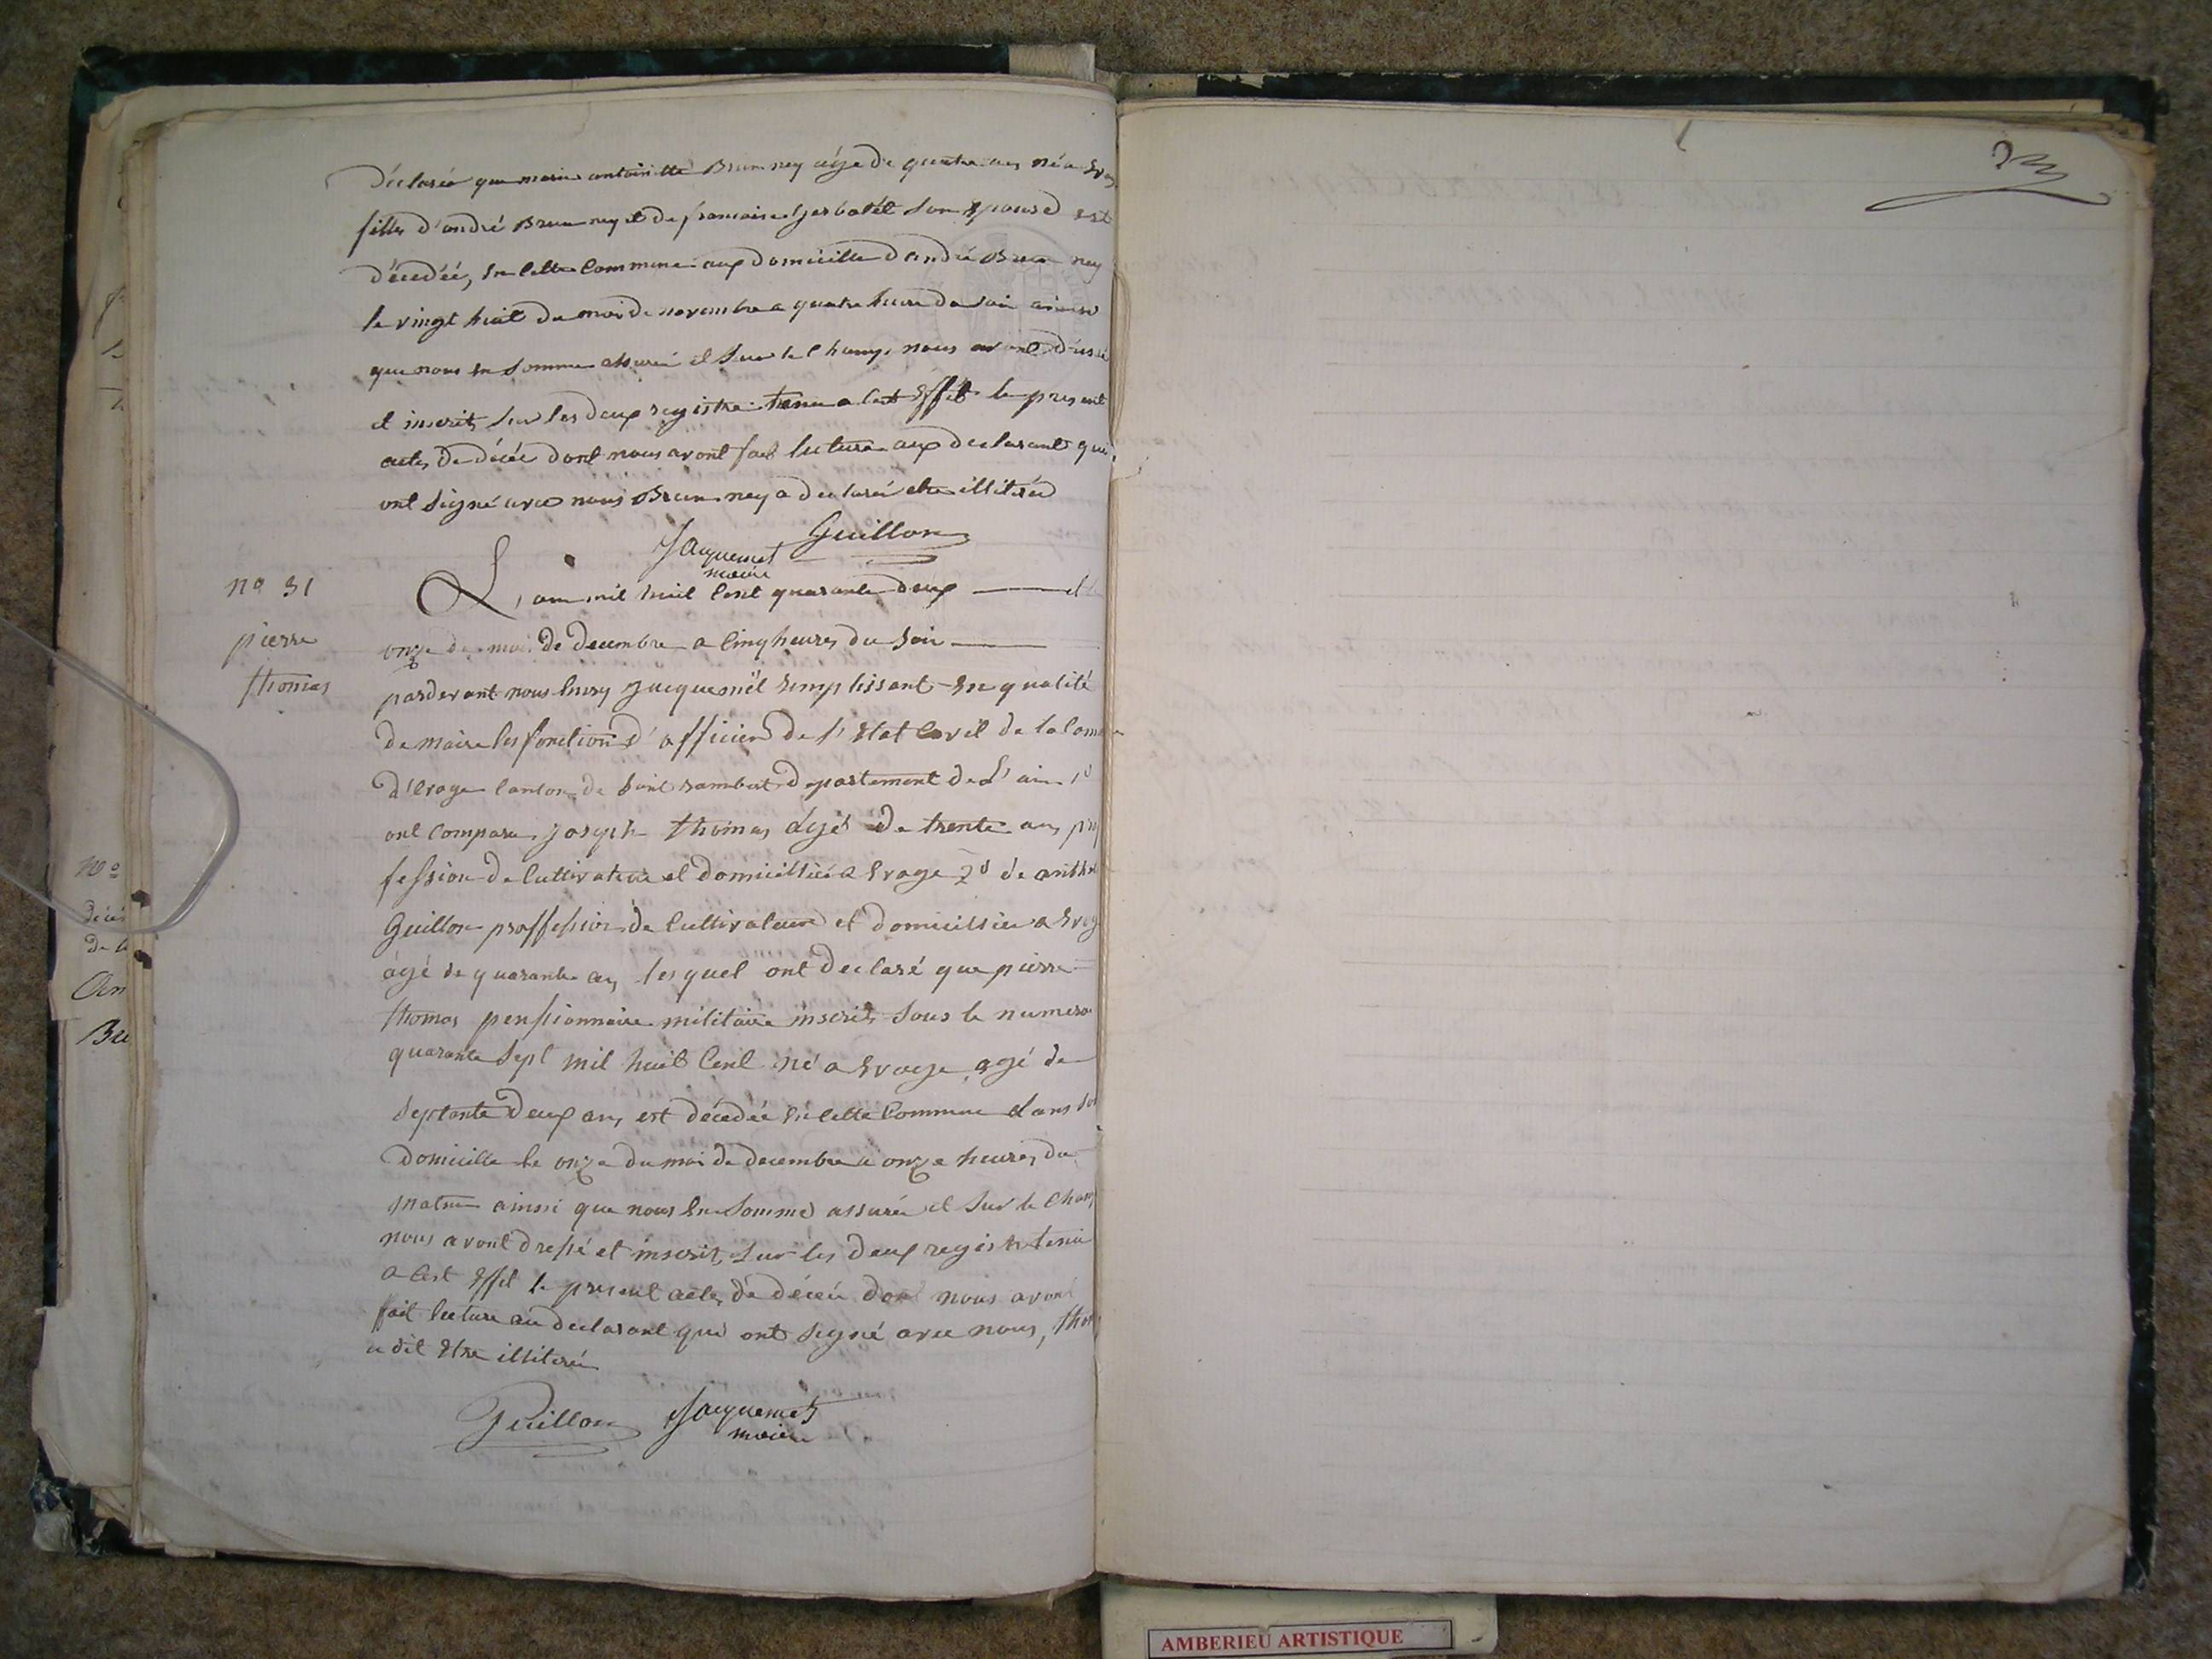 déclarée que marie antoinette Brun ney agé de quatre ans né a Evo
filles d'andré Brun ney et de francoise Gerbolet Son Epouse est
décedéé, En Cette Commune aux domicille d'andré Brun ney
le vingt huit du moi de novembre a quatre heure du soir ainsi
que nous En Somme assuré et Sur le Champ nous avont
et inscrit, Sur les deux registre tenu a Cest Effet le present
actes de décée dont nous avont fait lecture aux declarant qui
ont Signé avec nous Brun ney a declaréé etre illiteré
Jacquemet Guillon
maire
no 31
pierre
thomas
L'an mil huit Cent quarante deux
onze du moi de decembre a Cinq heures du Soir
pardevant nous Jacquemet remplissant En qualité
de maire les fonction d'officier de l'Etat Civil de la Com
d'Evoge Canton de Saint rambert departement de L'ain 1º
ont Comparu joseph thomas âgé de trente ans pro
fession de Cultivateur et domicillié a Evoge 2º de anthel
Guillon proffession de Cultivateur et domicillié a Evog
âgé de quarante ans lesquel ont declaré que pierre
thomas pensionnaire militaire inscrit Sous le numero
quarante Sept mil huit Cent né a Evoge agé de
Septante Deux ans est décedée En Cette Commune dans Son
Domicille le onze du moi de decembre a onze heures du
matin ainssi que nous En Somme assuré et Sur le Cham
nous avont dressé et inscrit Sur les deux registre tenu
a Cest Effet le present actes de décée dont nous avont
fait lecture au declarant qui ont Signé avec nous, thom
a dit Etre illiteré
Guillon Jacquemet
maire
No
de
Bru
AMBERIEU ARTISTIQUE